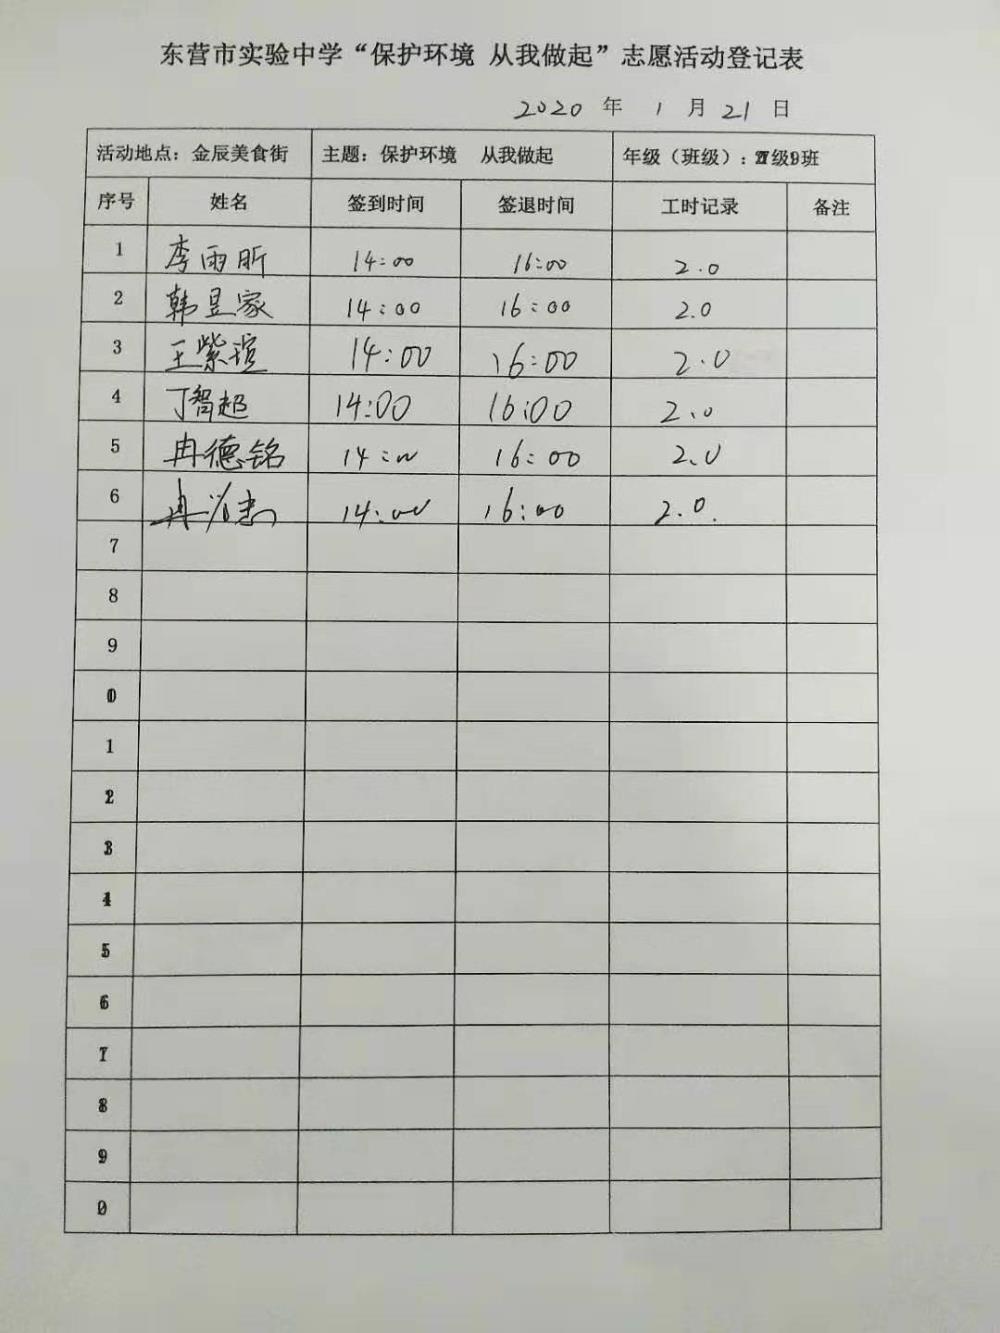 东营市实验中学“保护环境 从我做起”志愿活动登记表
2020 年 1 月 21 日
活动地点：金辰美食街 主题：保护环境 从我做起 年级（班级）： 级 班
序号 姓名 签到时间 签退时间 工时记录 备注
1 李雨昕 14:00 16:00 2.0
2 韩昱家 14:00 16:00 2.0
3 王紫瑄 14:00 16:00 2.0
4 丁智超 14:00 16:00 2.0
5 冉德铭 14:00 16:00 2.0
6 冉 14:00 16:00 2.0.
7
8
9
0
1
2
3
4
5
6
7
8
9
0